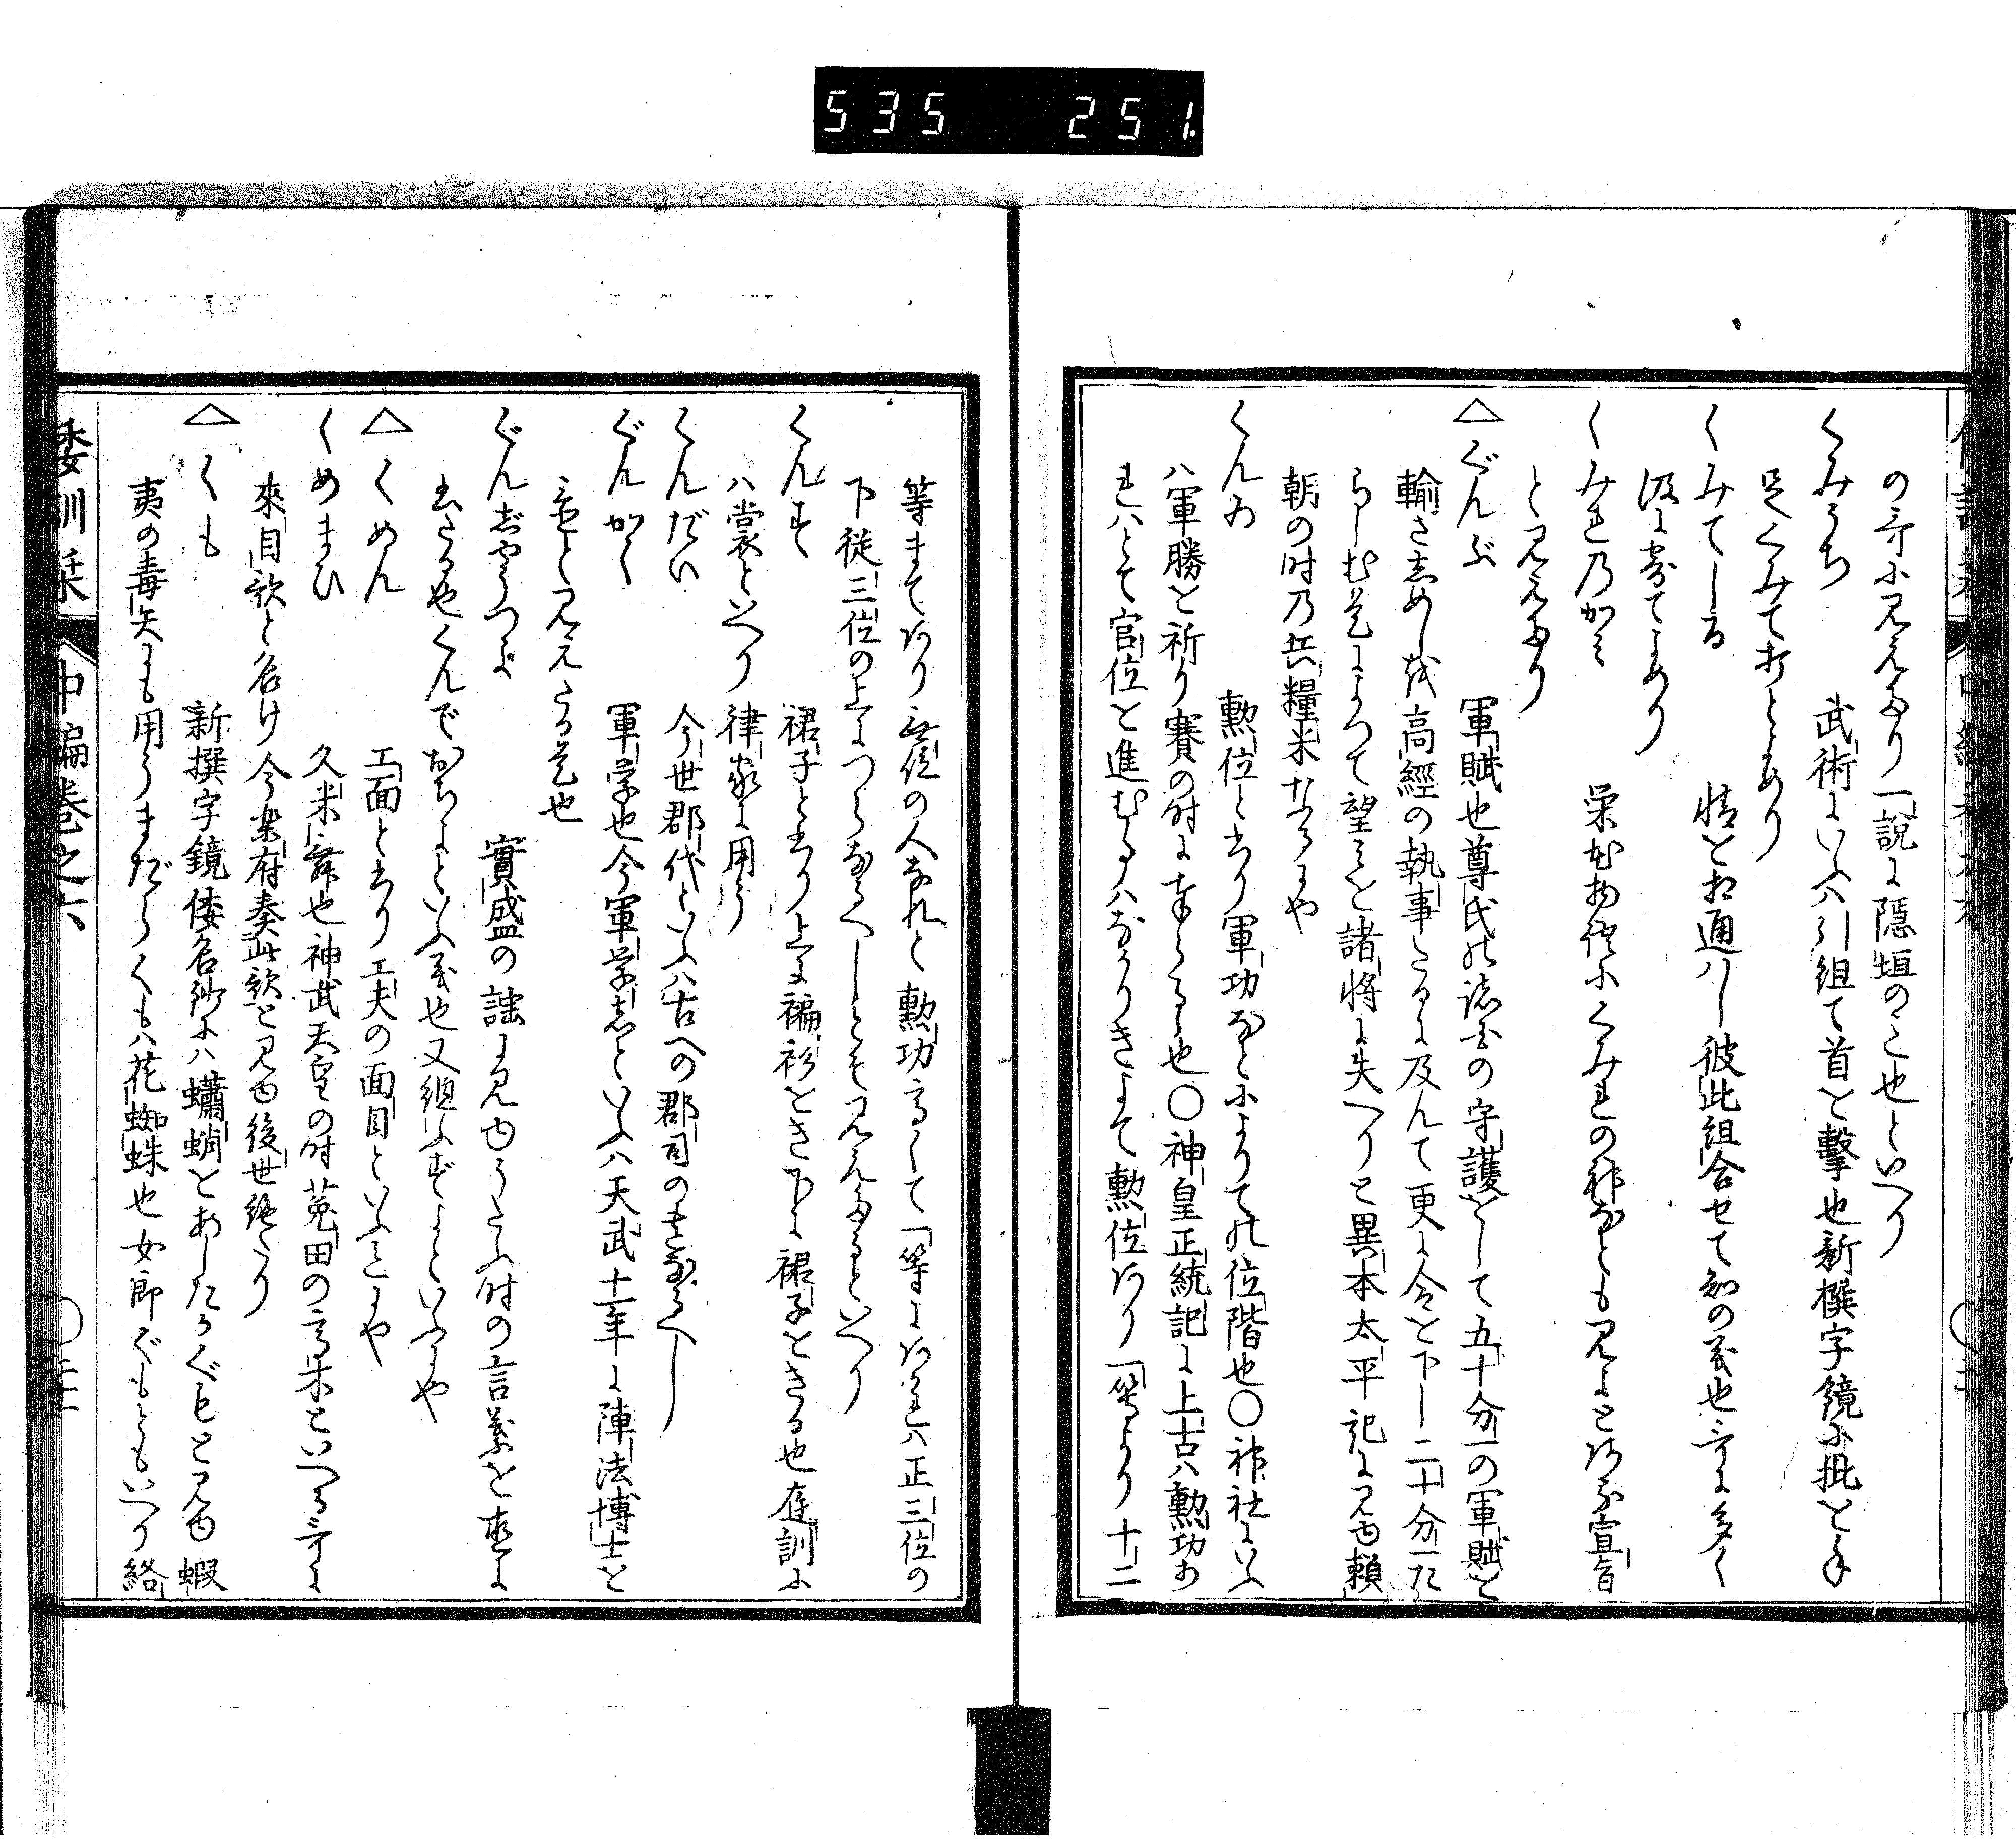 535 251.
の哥に見えたり一説に隠垣のこ也といへり
くみうち 武術にいふハ引組て首を撃也新撰字鏡に批を手
足くみて打とあり
くみてしる 情を相通ハし彼此組合せて知の義也哥に多く
汲によせてよめり
くみれのかミ 栄花物語にくみれの神なとも見よと
とみえたり
△ぐんぶ 軍賦也尊氏の諸国の守護をして五十分一の軍賦を
輸さしめしを高經の執事たるに及んて更に令を下し二十分一た
らしむ是によつて望ミを諸将に失へりと異本太平記に見ゆ頼
朝の時の兵糧米なるにや
くんゐ 勲位と書り軍功なとによりての位階也〇神社にいふ
ハ軍勝を祈り賽の時に奉らるゝ也〇神皇正統記に上古ハ勲功あ
れハとて官位を進むるハなかりきよて勲位あり一等より十二
等まてあり無位の人なれと勲功高くて一等にあかれハ正三位の
下従三位の上につらなるへしとそ見えたるといへり
くんす 裙子と書り上に褊衫をき下に裙子をきる也庭訓に
ハ裳といへり律家に用う
くんだい 今世郡代といふハ古への郡司のさまなるへし
ぐんがく 軍学也今軍学者といふハ天武十二年に陣法博士を
置と見えたる是也
ぐんぢやうつよ 實盛の謡に見ゆうたふ時の言葉を直に
書たる也くんでおちよといふ義也又組ふずよといふにや
△くめん 工面と書り工夫の面目といふこゝにや
くめまひ 久米舞也神武天皇の時菟田の高米といへる哥に
來目歌と名け今楽府奏此歌と見ゆ後世絶たり
△くも 新撰字鏡倭名鈔にハ蠨蛸をあしたかぐもと見ゆ蝦
夷の毒矢にも用うまだらくもハ花蜘蛛也女郎ぐもともいへり絡
倭訓栞 中編巻之六